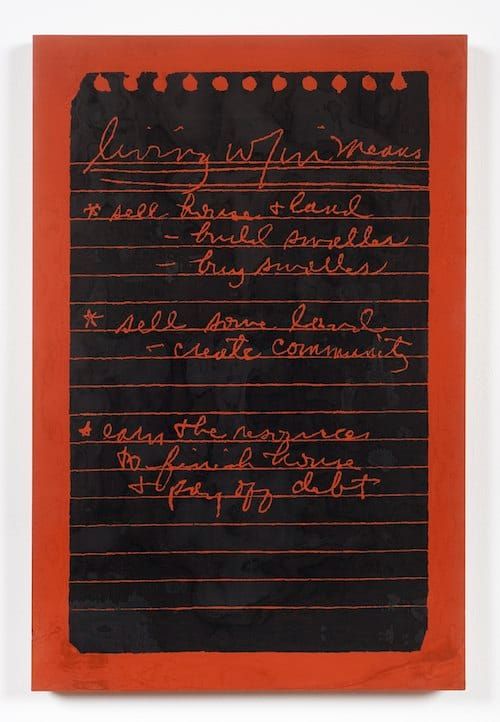 living w/in means
* sell house + land
- build smaller
- buy smaller
* sell some land
- create community
* earn the resources
to finish house
+ pay off debt